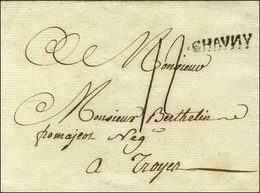 CHAUNY
A Monsieur
11
Monsieur Berthelin
fromajeot Neg.
a Troyes